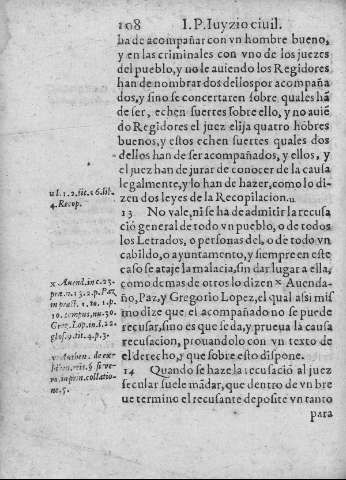 108 I.P. Iuyzio ciuil.
ha de acompañar con vn hombre bueno,
y en las criminales con vno de los juezes
del pueblo, y no le auiendo los Regidores
han de nombrar dos dellos por acompaña
dos, y sino se concertaren sobre quales hã
de ser, echen suertes sobre ello, y no auiẽ
do Regidores el juez elija quatro hõbres
buenos, y estos echen suertes quales dos
dellos han de ser acompañados, y ellos, y
el juez han de jurar de conocer de la causa
legalmente, y lo han de hazer, como lo di-
zen dos leyes de la Recopilacion. u
u l. 1. 2. tit. 16. lib.
4. Recop.
13 No vale, ni se ha de admitir la recusa
ció general de todo vn pueblo, o de todos
los Letrados, o personas del, o de todo vn
cabildo, o ayuntamento, y siempre en este
caso se ataje la malacia, sin dar lugar a ella,
como demas de otros lo dizen x Auenda-
ño, Paz, y Gregorio Lopez, el qual assi mis
mo dize que el acompañado no se puede
recusar, sino es que se da, y prueua la causa
recusacion, prouandolo con vn texto de
el derecho, y que sobre esto dispone.
x Auend. in c. 25.
præt. n. 13. 2. p. Paz
in pract. 1. to. 1. p.
10. tempus, nu. 50.
Greg. Lop. in l. 22
glos. 9. tit. 4. p. 3.
y Authen. de ex-
hiben. reis. § si ve-
ro, in prin. collatio-
ne. 5.
14 Quando se haze la recusació al juez
secular suele mãdar, que dentro de vn bre
ue termino el recusante deposite vn tanto
para